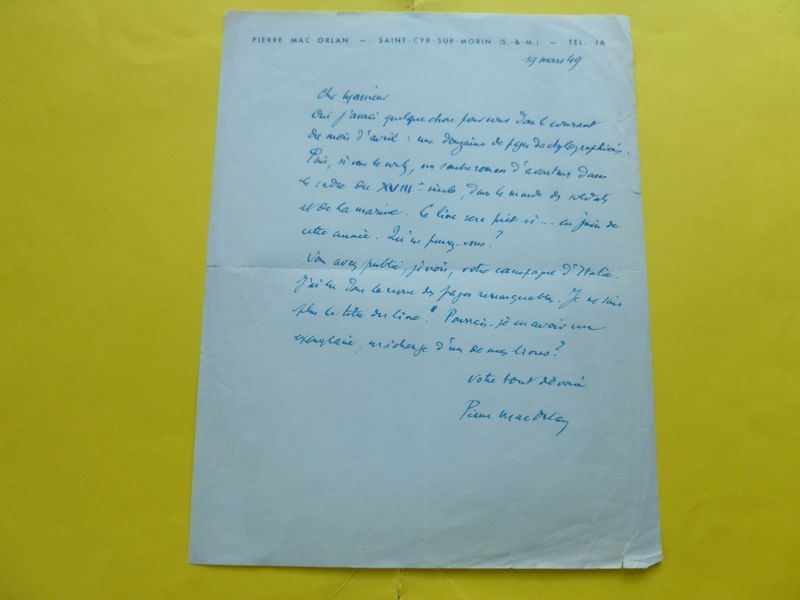 PIERRE MAC ORLAN — SAINT-CYR-SUR-MORIN (S.-&-M.) — TÉL. 16
19 mars 49
Cher Monsieur
Oui j'aurai quelque chose pour vous dans le courant
du mois d'avril : une douzaine de pages dactylographiées.
Puis, si vous le voulez, un roman d'aventures dans
le cadre du XVIIIe siècle, dans le monde des soldats
et de la marine. Ce livre sera prêt ici... en juin de
cette année. Qu'en pensez-vous ?
Vous avez publié, je crois, votre campagne d'Italie.
J'ai lu dans la revue des pages remarquables. Je ne sais
plus le titre du livre. Pourrais-je en avoir un
exemplaire, en échange d'un de mes livres ?
Votre tout dévoué
Pierre Mac Orlan